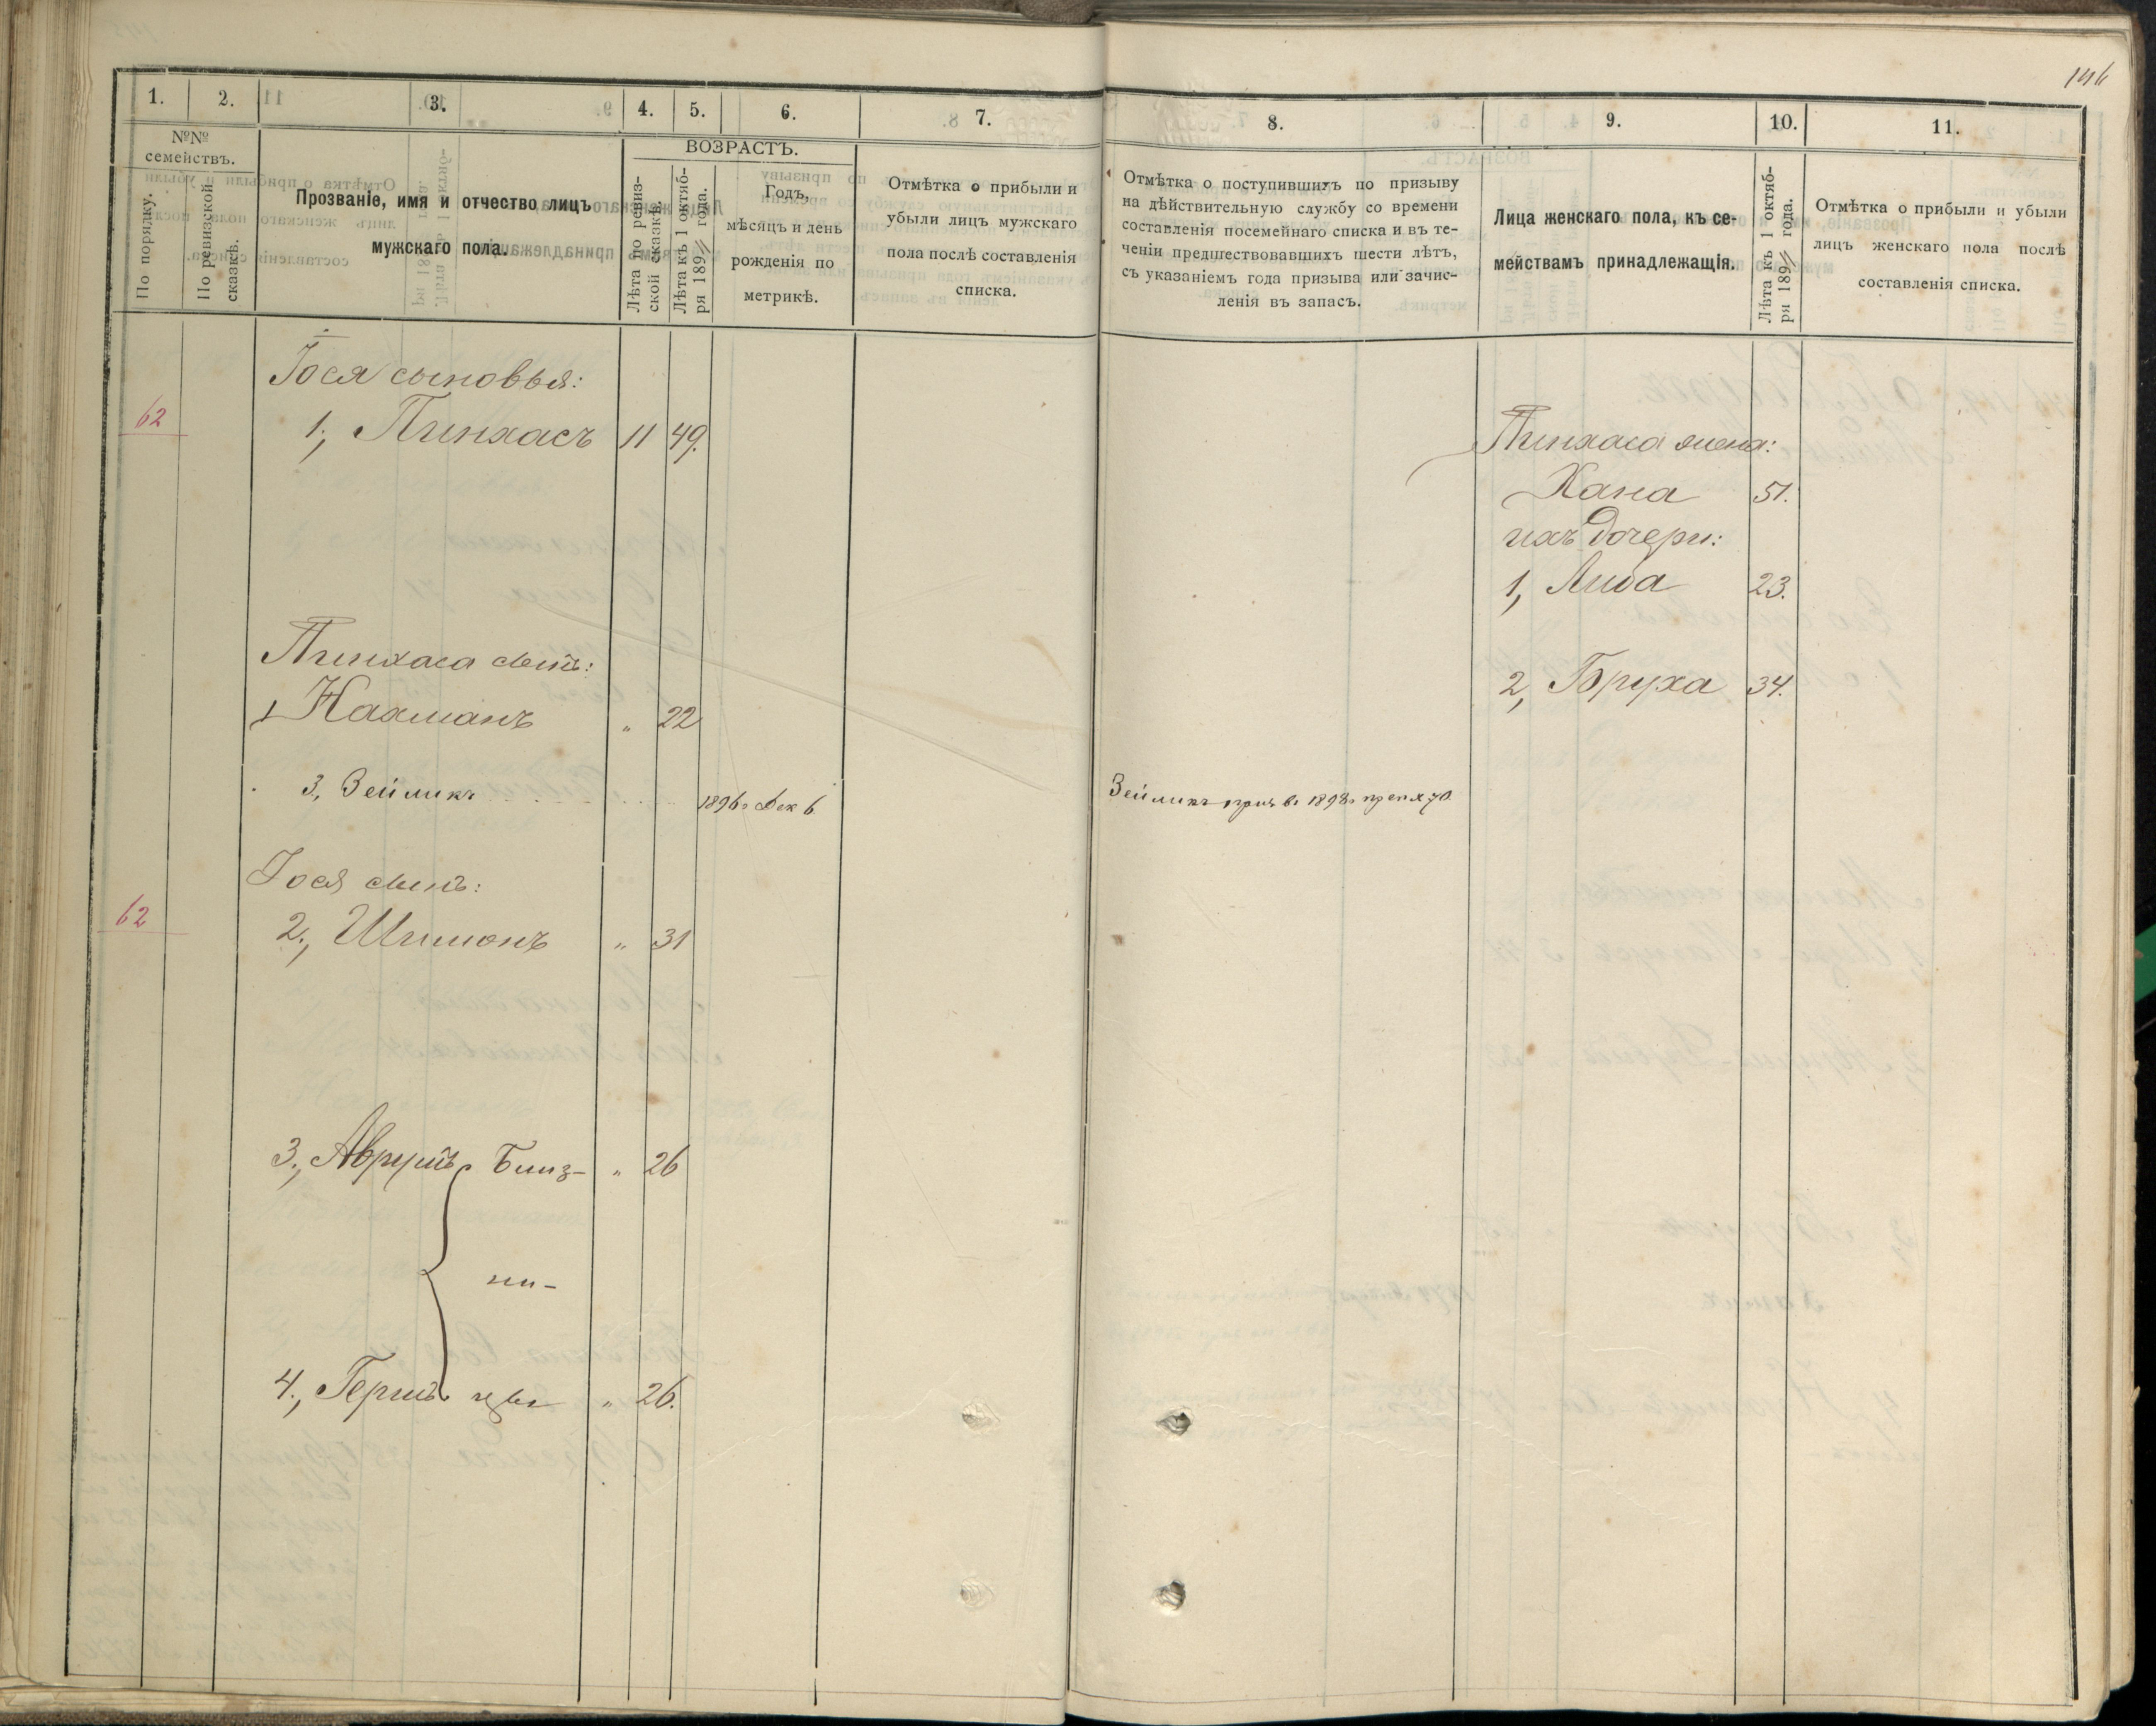 146
1. 2. 3. 4. 5. 6. 7. 8. 9. 10. 11.
№№ семействъ.
По порядку.
По ревизской сказкѣ.
Прозваніе, имя и отчество лицъ
мужскаго пола.
ВОЗРАСТЪ.
Лѣта по ревиз-
ской сказкѣ.
Лѣта къ 1 октяб-
ря 189 года.
Годъ,
мѣсяцъ и день
рожденія по
метрикѣ.
Отмѣтка о прибыли и
убыли лицъ мужскаго
пола послѣ составленія
списка.
Отмѣтка о поступившихъ по призыву
на дѣйствительную службу со времени
составленія посемейнаго списка и въ те-
ченіи предшествовавшихъ шести лѣтъ,
съ указаніемъ года призыва или зачис-
ленія въ запасъ.
Лица женскаго пола, къ се-
мействамъ принадлежащія.
Лѣта къ 1 октяб-
ря 189 года.
Отмѣтка о прибыли и убыли
лицъ женскаго пола послѣ
составленія списка.
Іося сыновья:
62 1., Пинхасъ 11 49.
Пинхаса сынъ:
1 Нахманъ " 22
3, Зейликъ 1896г Дек 6
Іося сынъ:
62 2., Шимонъ " 31
3., Аврумъ Близ- " 26
ни-
4., Гершъ цы " 26.
Зейликъ 1898г
Пинхаса жена:
Хана 51.
ихъ дочери:
1, Либа 23.
2, Бруха 34.